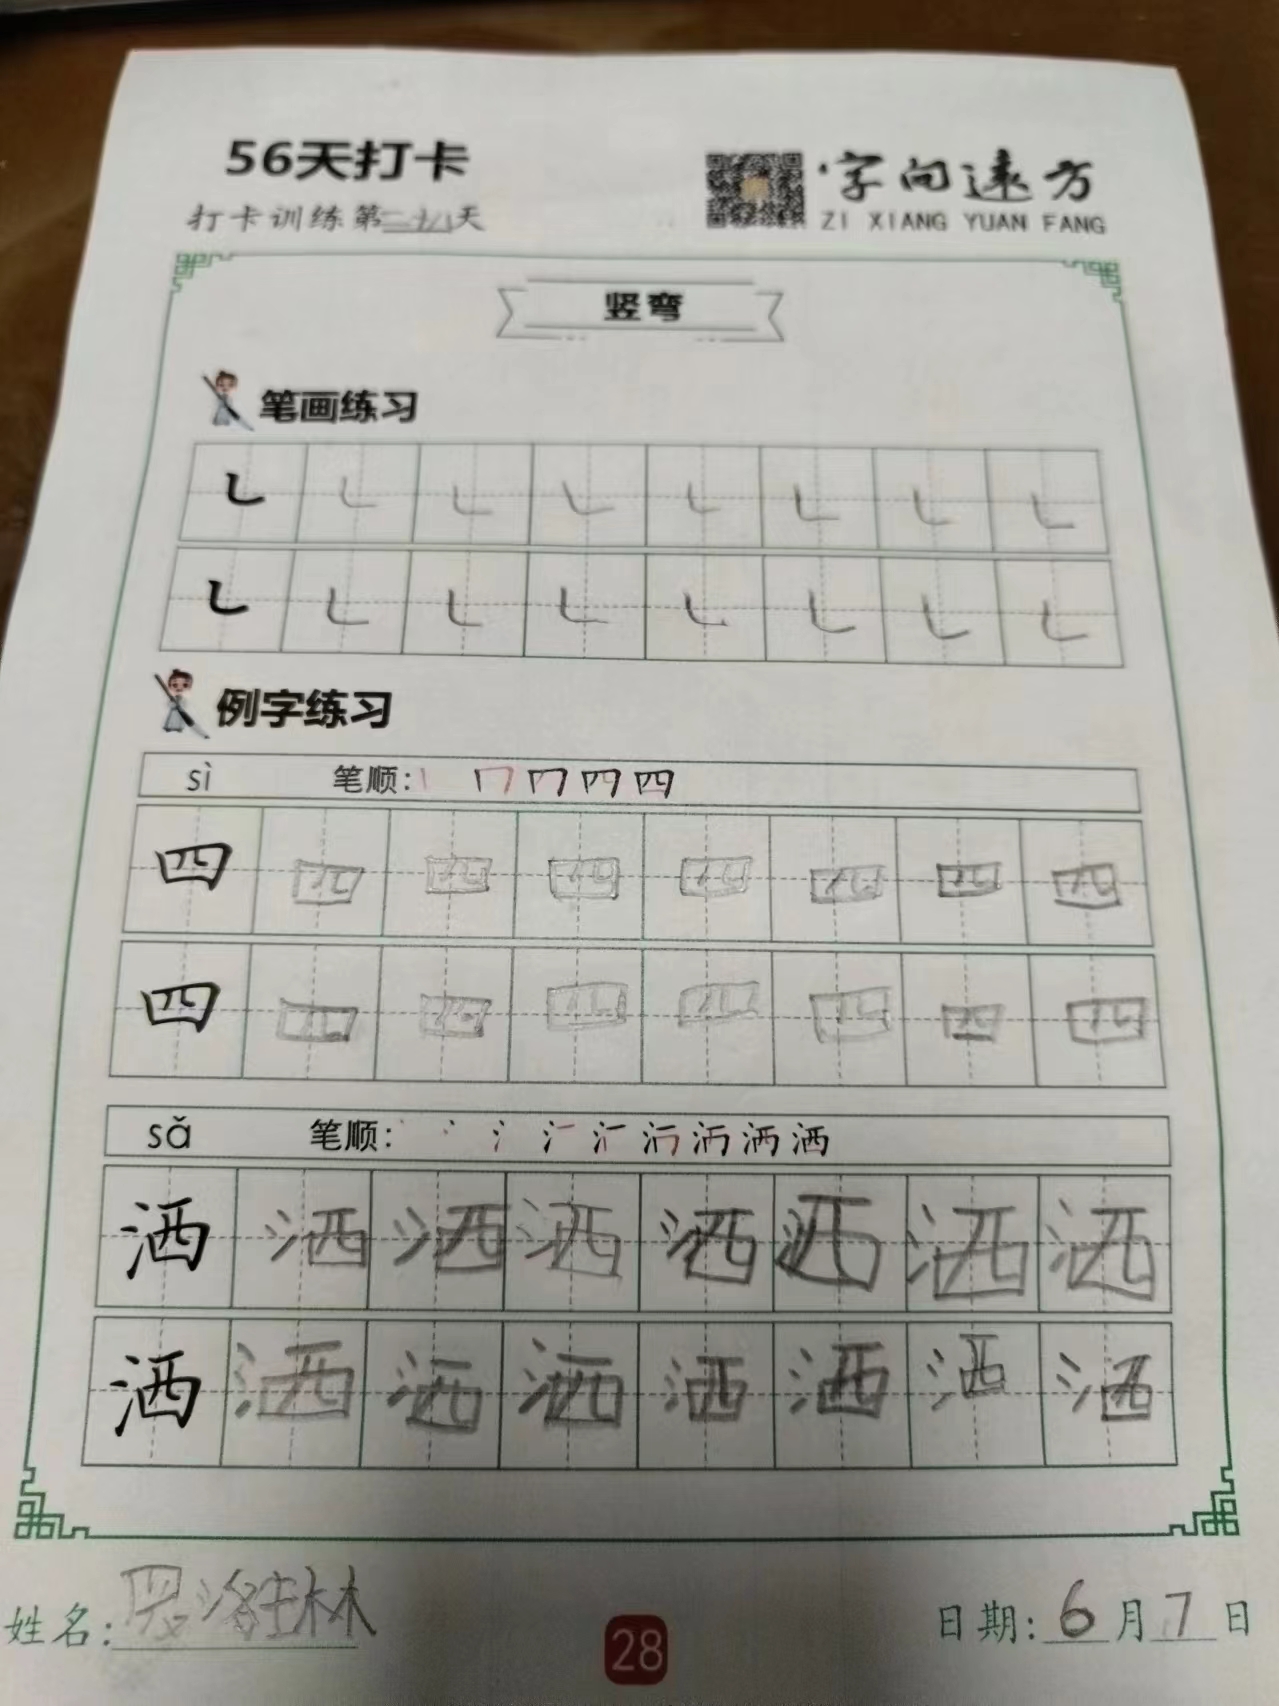 56天打卡
打卡训练第二十八天
字向远方
ZI XIANG YUAN FANG
竖弯
笔画练习
例字练习
sì 笔顺:
四 四 四 四 四 四 四 四
四 四 四 四 四 四 四 四
sǎ 笔顺:
洒 洒 洒 洒 洒 洒 洒 洒
洒 洒 洒 洒 洒 洒 洒 洒
姓名:
28
日期: 6月7日